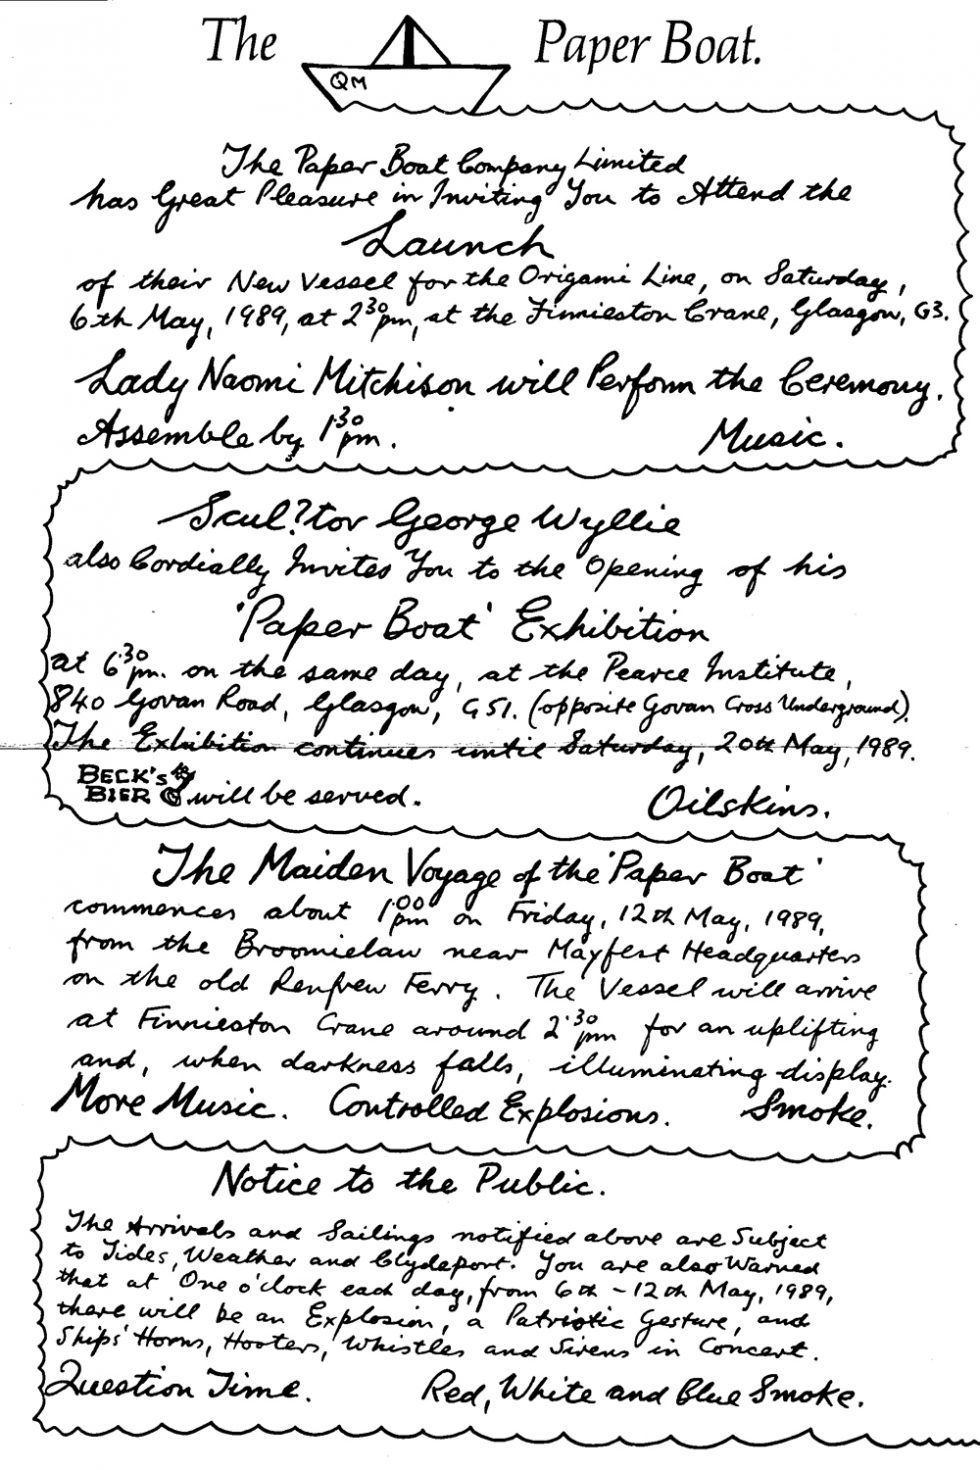 The Paper Boat.
QM
The Paper Boat Company Limited
has Great Pleasure in Inviting You to Attend the
Launch
of their New Vessel for the Origami Line, on Saturday,
6th May, 1989, at 2.30pm, at the Finnieston Crane, Glasgow, G3.
Lady Naomi Mitchison will Perform the Ceremony.
Assemble by 1.30pm. Music.
Scul?tor George Wyllie
also Cordially Invites You to the Opening of his
'Paper Boat' Exhibition
at 6.30pm. on the same day, at the Pearce Institute,
840 Govan Road, Glasgow, G51. (opposite Govan Cross Underground).
The Exhibition continues until Saturday, 20th May, 1989.
BECK'S
BIER will be served. Oilskins.
The Maiden Voyage of the 'Paper Boat'
commences about 1.00pm on Friday, 12th May, 1989,
from the Broomielaw near Mayfest Headquarters
on the old Renfrew Ferry. The Vessel will arrive
at Finnieston Crane around 2.30pm for an uplifting
and, when darkness falls, illuminating display.
More Music. Controlled Explosions. Smoke.
Notice to the Public.
The Arrivals and Sailings notified above are Subject
to Tides, Weather and Clydeport. You are also Warned
that at One o'clock each day, from 6th - 12th May, 1989,
there will be an Explosion, a Patriotic Gesture, and
Ships' Horns, Hooters, Whistles and Sirens in Concert.
Question Time. Red, White and Blue Smoke.